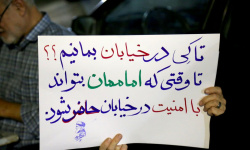 تا کی در خیابان بمانیم؟؟
تا وقتی که امام‌مان بتواند
با امنیت در خیابان حاضر شود.